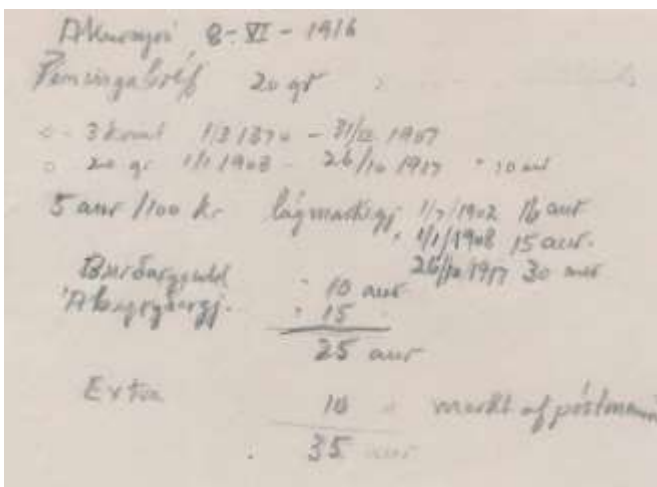 Akureyri 8-VI-1916
Peningabréf 20 gr
3 kvint 1/3 1870 - 31/12 1907
20 gr 1/1 1908 - 26/10 1917 " 10 aur
5 aur/100 kr lágmarksgj 1/7/1902 16 aur
" 1/1/1908 15 aur.
26/10/1917 30 aur
Burðargjald " 10 aur
Ábyrgðargj. " 15
25 aur
Extra 10 " merkt af póstmanni
35 aur